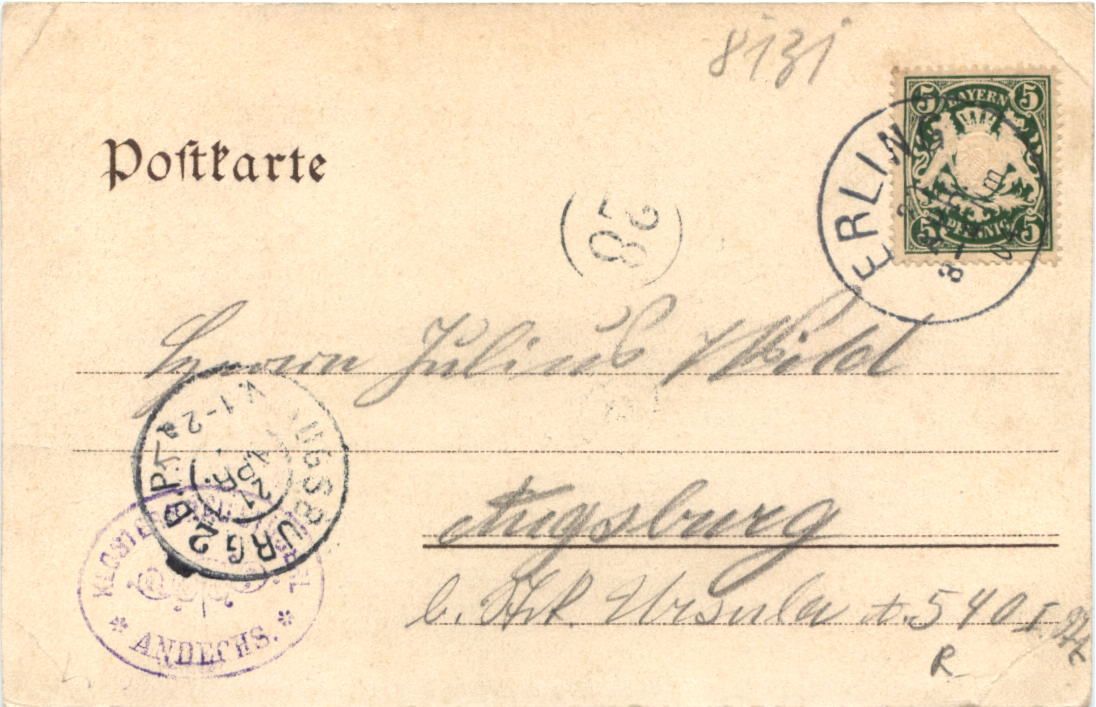 8131
Poſtkarte
5 BAYERN 5
5 PFENNIG 5
ERLING
28
Herrn Julius Wild
AUGSBURG 2 B.P.
V. 1-2
APR.
Augsburg
KLOSTER
ANDECHS.
b. St. Ursula 540 I.
R